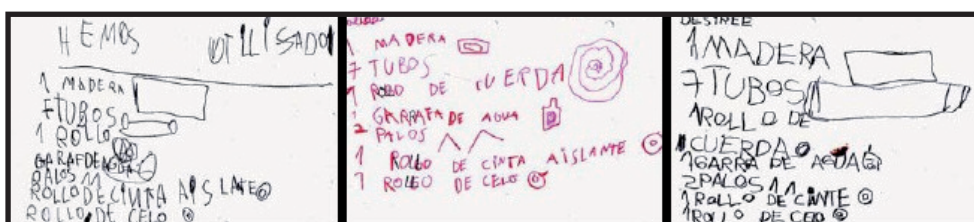 HEMOS UTILISADO
1 MADERA
7TUBOS
1 ROLLO
GARAFDEAGUA
PALOS 11
ROLLODECINTA AISLATE
ROLLO DE CELO
1 MADERA
7 TUBOS
1 ROLLO DE CUERDA
1 GARRAFA DE AGUA
2 PALOS
1 ROLLO DE CINTA AISLANTE
1 ROLLO DE CELO
DESIREE
1 MADERA
7 TUBOS
1 ROLLO DE
CUERDA
1 GARRA DE AGUA
2 PALOS
1 ROLLO DE CINTE
1 ROLLO DE CELO